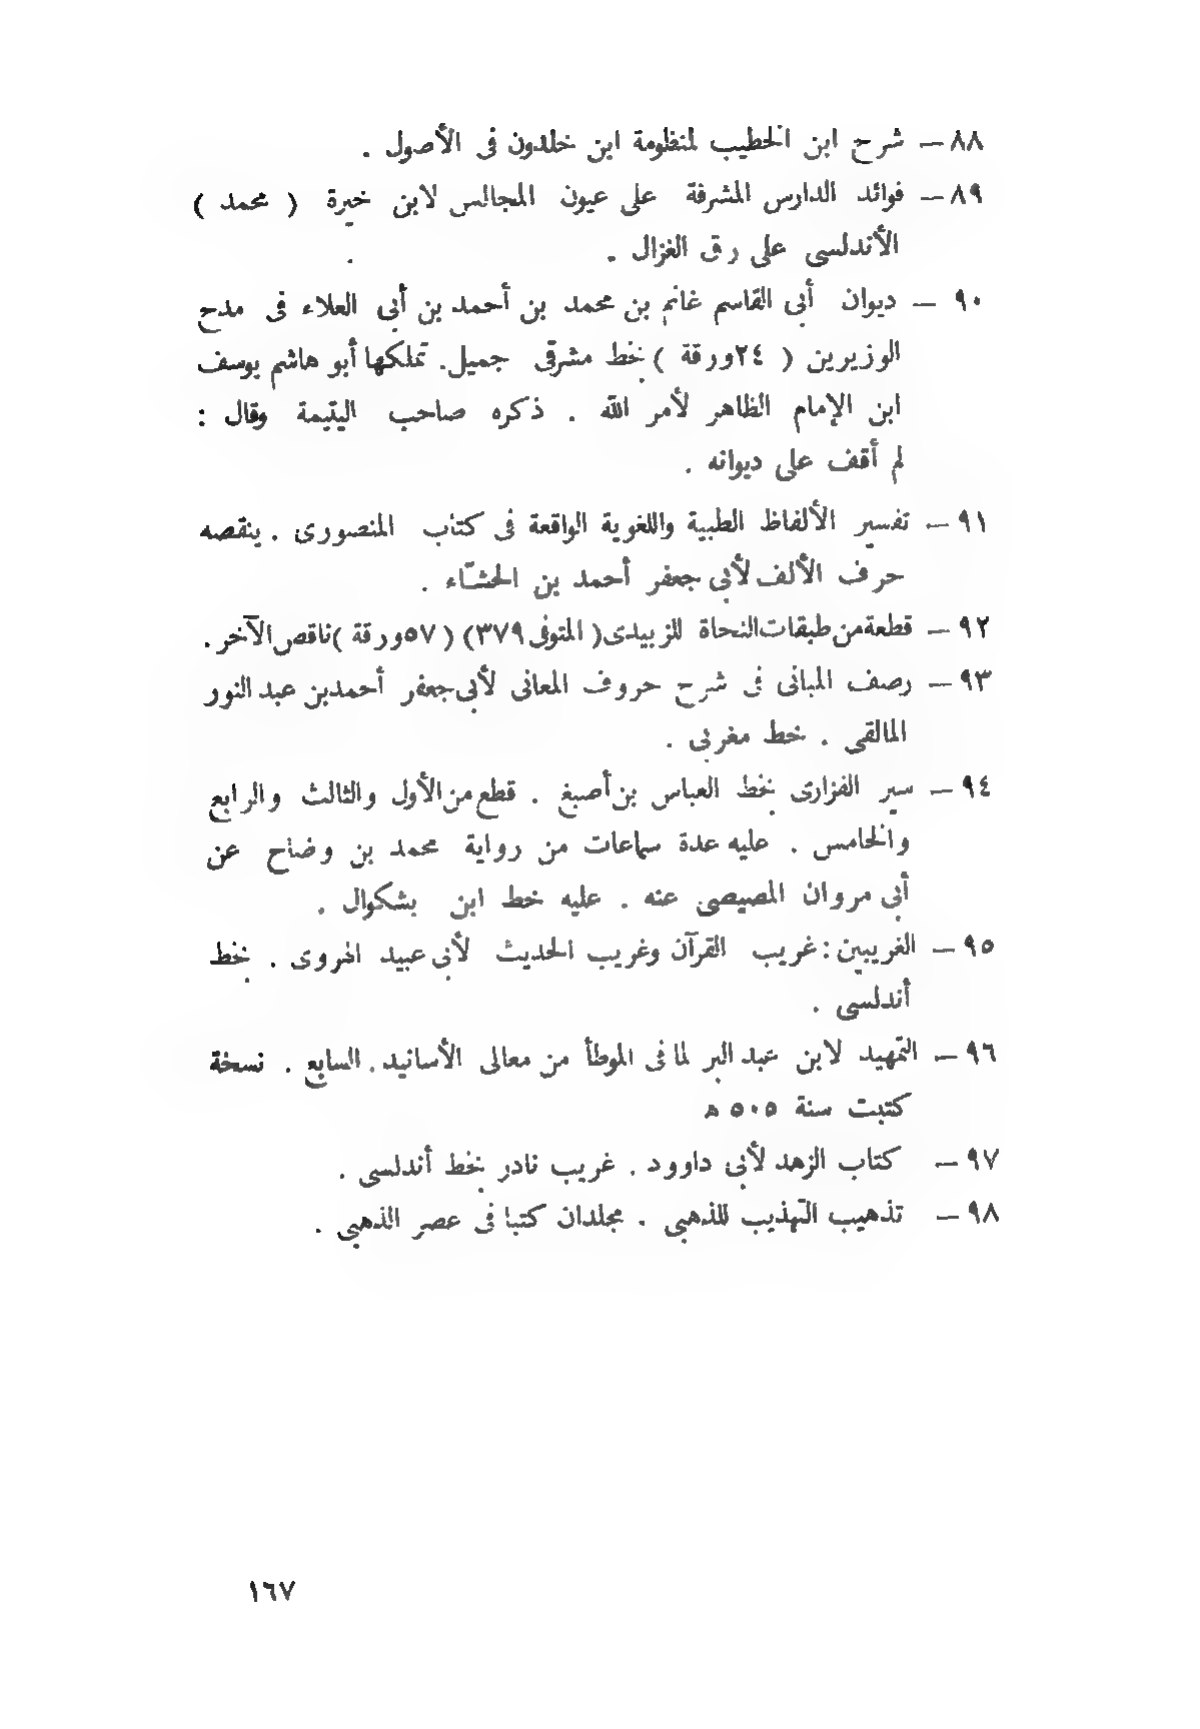 ٨٨ — شرح ابن الخطيب لمنظومة ابن خلدون فى الأصول .
٨٩ — فوائد الدارس المشرفة على عيون المجالس لابن خيرة ( محمد )
الأندلسى على رق الغزال .
٩٠ — ديوان أبى القاسم غانم بن محمد بن أحمد بن أبى العلاء فى مدح
الوزيرين ( ٢٤ورقة ) بخط مشرقى جميل. تملكها أبو هاشم يوسف
ابن الإمام الظاهر لأمر الله . ذكره صاحب اليتيمة وقال :
لم أقف على ديوانه .
٩١ — تفسير الألفاظ الطبية واللغوية الواقعة فى كتاب المنصورى . ينقصه
حرف الألف لأبى جعفر أحمد بن الحشّاء .
٩٢ — قطعة من طبقات النحاة للزبيدى ( المتوفى ٣٧٩) ( ٥٧ورقة ) ناقص الآخر .
٩٣ — رصف المبانى فى شرح حروف المعانى لأبى جعفر أحمد بن عبد النور
المالقى . خط مغربى .
٩٤ — سير الفزارى بخط العباس بن أصبغ . قطع من الأول والثالث والرابع
والخامس . عليه عدة سماعات من رواية محمد بن وضاح عن
أبى مروان المصيصى عنه . عليه خط ابن بشكوال .
٩٥ — الغريبين : غريب القرآن وغريب الحديث لأبى عبيد الهروى . بخط
أندلسى .
٩٦ — التمهيد لابن عبد البر لما فى الموطأ من معالى الأسانيد . السابع . نسخة
كتبت سنة ٥٠٥ ه
٩٧ — كتاب الزهد لأبى داوود . غريب نادر بخط أندلسى .
٩٨ — تذهيب التهذيب للذهبى . مجلدان كتبا فى عصر الذهبى .
١٦٧